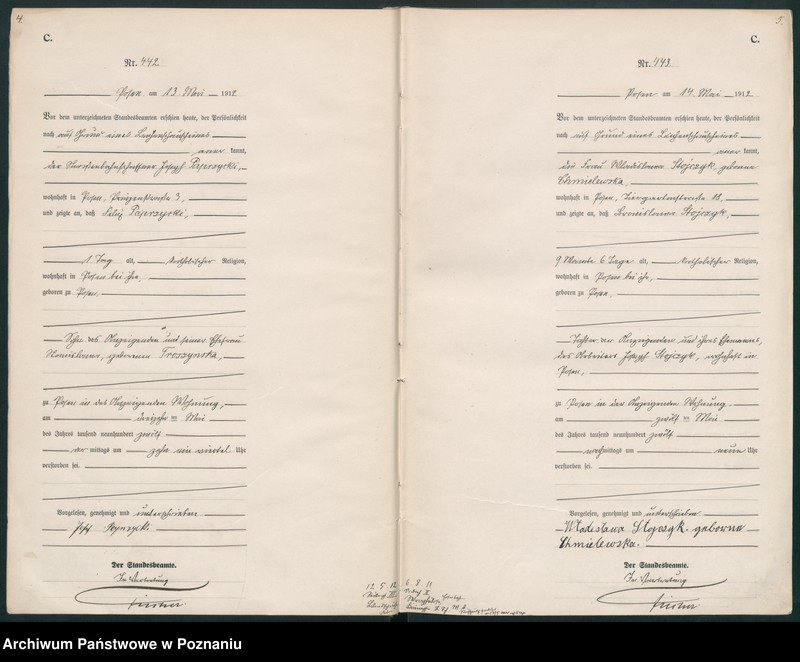 4.
C.
Nr. 442
Posen am 13 Mai 1912
Vor dem unterzeichneten Standesbeamten erschien heute, der Persönlichkeit
nach auf Grund eines Leichenschauscheines
aner kannt,
der Joseph Paperzycki,
wohnhaft in Posen, 3,
und zeigte an, daß Paperzycki,
1 Tag alt, katholischer Religion,
wohnhaft in Posen bei ihm,
geboren zu Posen,
Sohn des Anzeigenden und seiner Ehefrau
Stanislawa, geborenen Troszynska,
zu Posen in des Anzeigenden Wohnung,
am ten Mai
des Jahres tausend neunhundert zwölf
vor mittags um zehn ein viertel Uhr
verstorben sei.
Vorgelesen, genehmigt und unterschrieben
Der Standesbeamte.
In Vertretung
5.
C.
Nr. 443.
Posen am 14. Mai 1912
Vor dem unterzeichneten Standesbeamten erschien heute, der Persönlichkeit
nach auf Grund eines Leichenschauscheines
aner kannt,
die Frau Wladislawa Stojczyk, geborene
Chmielewska,
wohnhaft in Posen, Tiergartenstrasse 18,
und zeigte an, daß Bronislawa Stojczyk,
9 Monate 6 Tage alt, katholischer Religion,
wohnhaft in Posen bei ihr,
geboren zu Posen,
Tochter der Anzeigenden und ihres Ehemannes,
des Arbeiters Joseph Stojczyk, wohnhaft in
Posen,
zu Posen in der Anzeigenden Wohnung
am zwölf ten Mai
des Jahres tausend neunhundert zwölf
nachmittags um neun Uhr
verstorben sei.
Vorgelesen, genehmigt und unterschrieben
Władesława Stojczyk geborene
Chmielewska.
Der Standesbeamte.
In Vertretung
12. 5. 12
6. 8 11
Archiwum Państwowe w Poznaniu